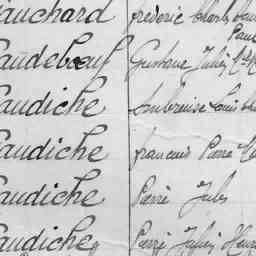 auchard frederic Charles
Paul
audebœuf Gustave Jules
audiche Ambroise Louis
audiche francois Pierre
audiche Pierre Jules
audiche Pierre Julien Henri